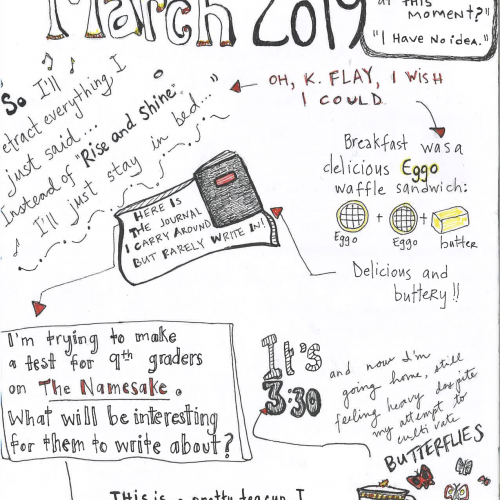 March 2019
AT THIS
MOMENT?"
"I HAVE NO IDEA."
So I'll
etract everything I
just said...
Instead of "Rise and Shine",
I'll just stay in bed..."
OH, K. FLAY, I WISH
I COULD
Breakfast was a
delicious Eggo
waffle sandwich:
+ +
Eggo Eggo butter
Delicious and
buttery!!
HERE IS
THE JOURNAL
I CARRY AROUND
BUT RARELY WRITE IN!
I'm trying to make
a test for 9th graders
on The Namesake.
What will be interesting
for them to write about?
It's
3:30
and now I'm
going home, still
feeling heavy despite
my attempt to
cultivate
BUTTERFLIES
THIS is a pretty teacup I